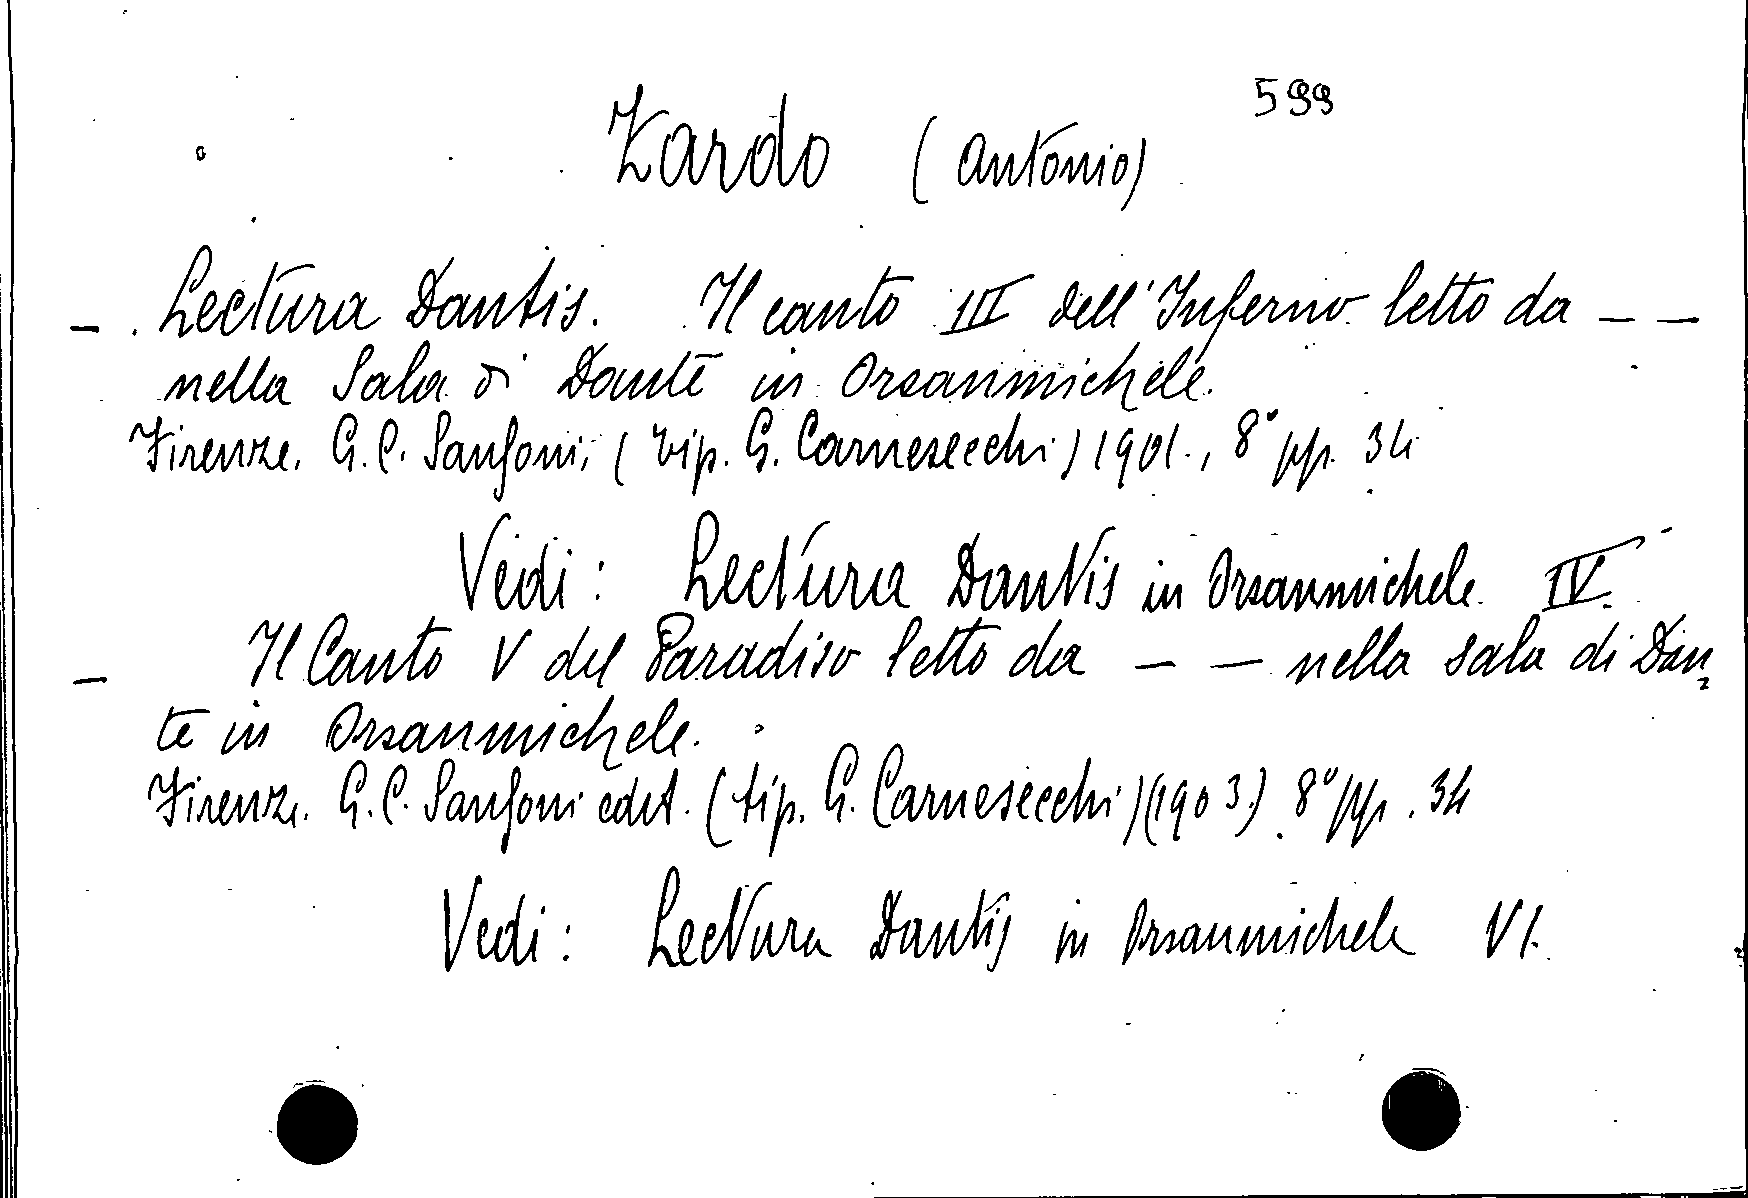 599
Zardo (Antonio)
- . Lectura Dantis. Il canto III dell'Inferno letto da - -
nella Sala di Dante in Orsanmichele.
Firenze. G. C. Sansoni, (tip. G. Carnesecchi) 1901., 8° pp. 34
Vedi: Lectura Dantis in Orsanmichele IV.
- Il Canto V del Paradiso letto da - - nella sala di Dan
te in Orsanmichele.
Firenze. G. C. Sansoni edit. (tip. G. Carnesecchi) (1903.) 8° pp. 34
Vedi: Lectura Dantis in Orsanmichele VI.